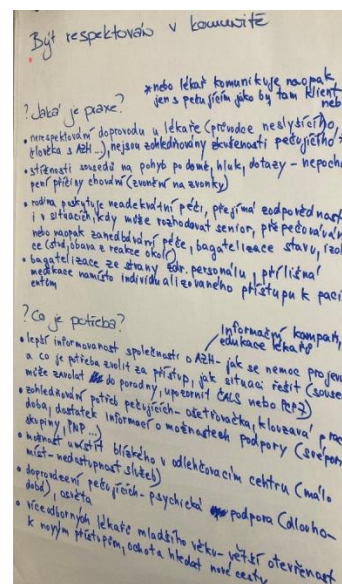 Být respektován v komunitě
*nebo lékař komunikuje naopak
jen s pečujícím jako by tam klient
neb
? Jaká je praxe?
• nerespektování doprovodu u lékaře (průvodce neslyšícího,
člověka s AZH...), nejsou zohledňovány zkušenosti pečujícího *
• stížnosti sousedů na pohyb po domě, hluk, dotazy - nepocho
pení příčiny chování (zvonění na zvonky)
• rodina poskytuje neadekvátní péči, přejímá zodpovědnost
i v situacích, kdy může rozhodovat senior, přepečovávání
nebo naopak zanedbávání péče, bagatelizace stavu, izol
ce (stud, obava z reakce okolí)
• bagatelizace ze strany zdr. personálu, přílišná
medikace namísto individualizovaného přístupu k paci
entům
? Co je potřeba?
Informační kampaň,
edukace lékařů
• lepší informovanost společnosti o AZH - jak se nemoc projevu
a co je potřeba zvolit za přístup, jak situaci řešit (souse
může zavolat do poradny, upozornit ČALS nebo
• zohledňování potřeb pečujících - ošetřovačka, klouzavá prac
doba, dostatek informací o možnostech podpory (svépom
skupiny, PNP...)
• možnost umístit blízkého v odlehčovacím centru (málo
míst - nedostupnost služeb)
• doprovázení pečujících - psychická podpora (dlouho-
době), osvěta
• více odborných lékařů mladšího věku - větší otevřenost
k novým přístupům, ochota hledat nové cesty